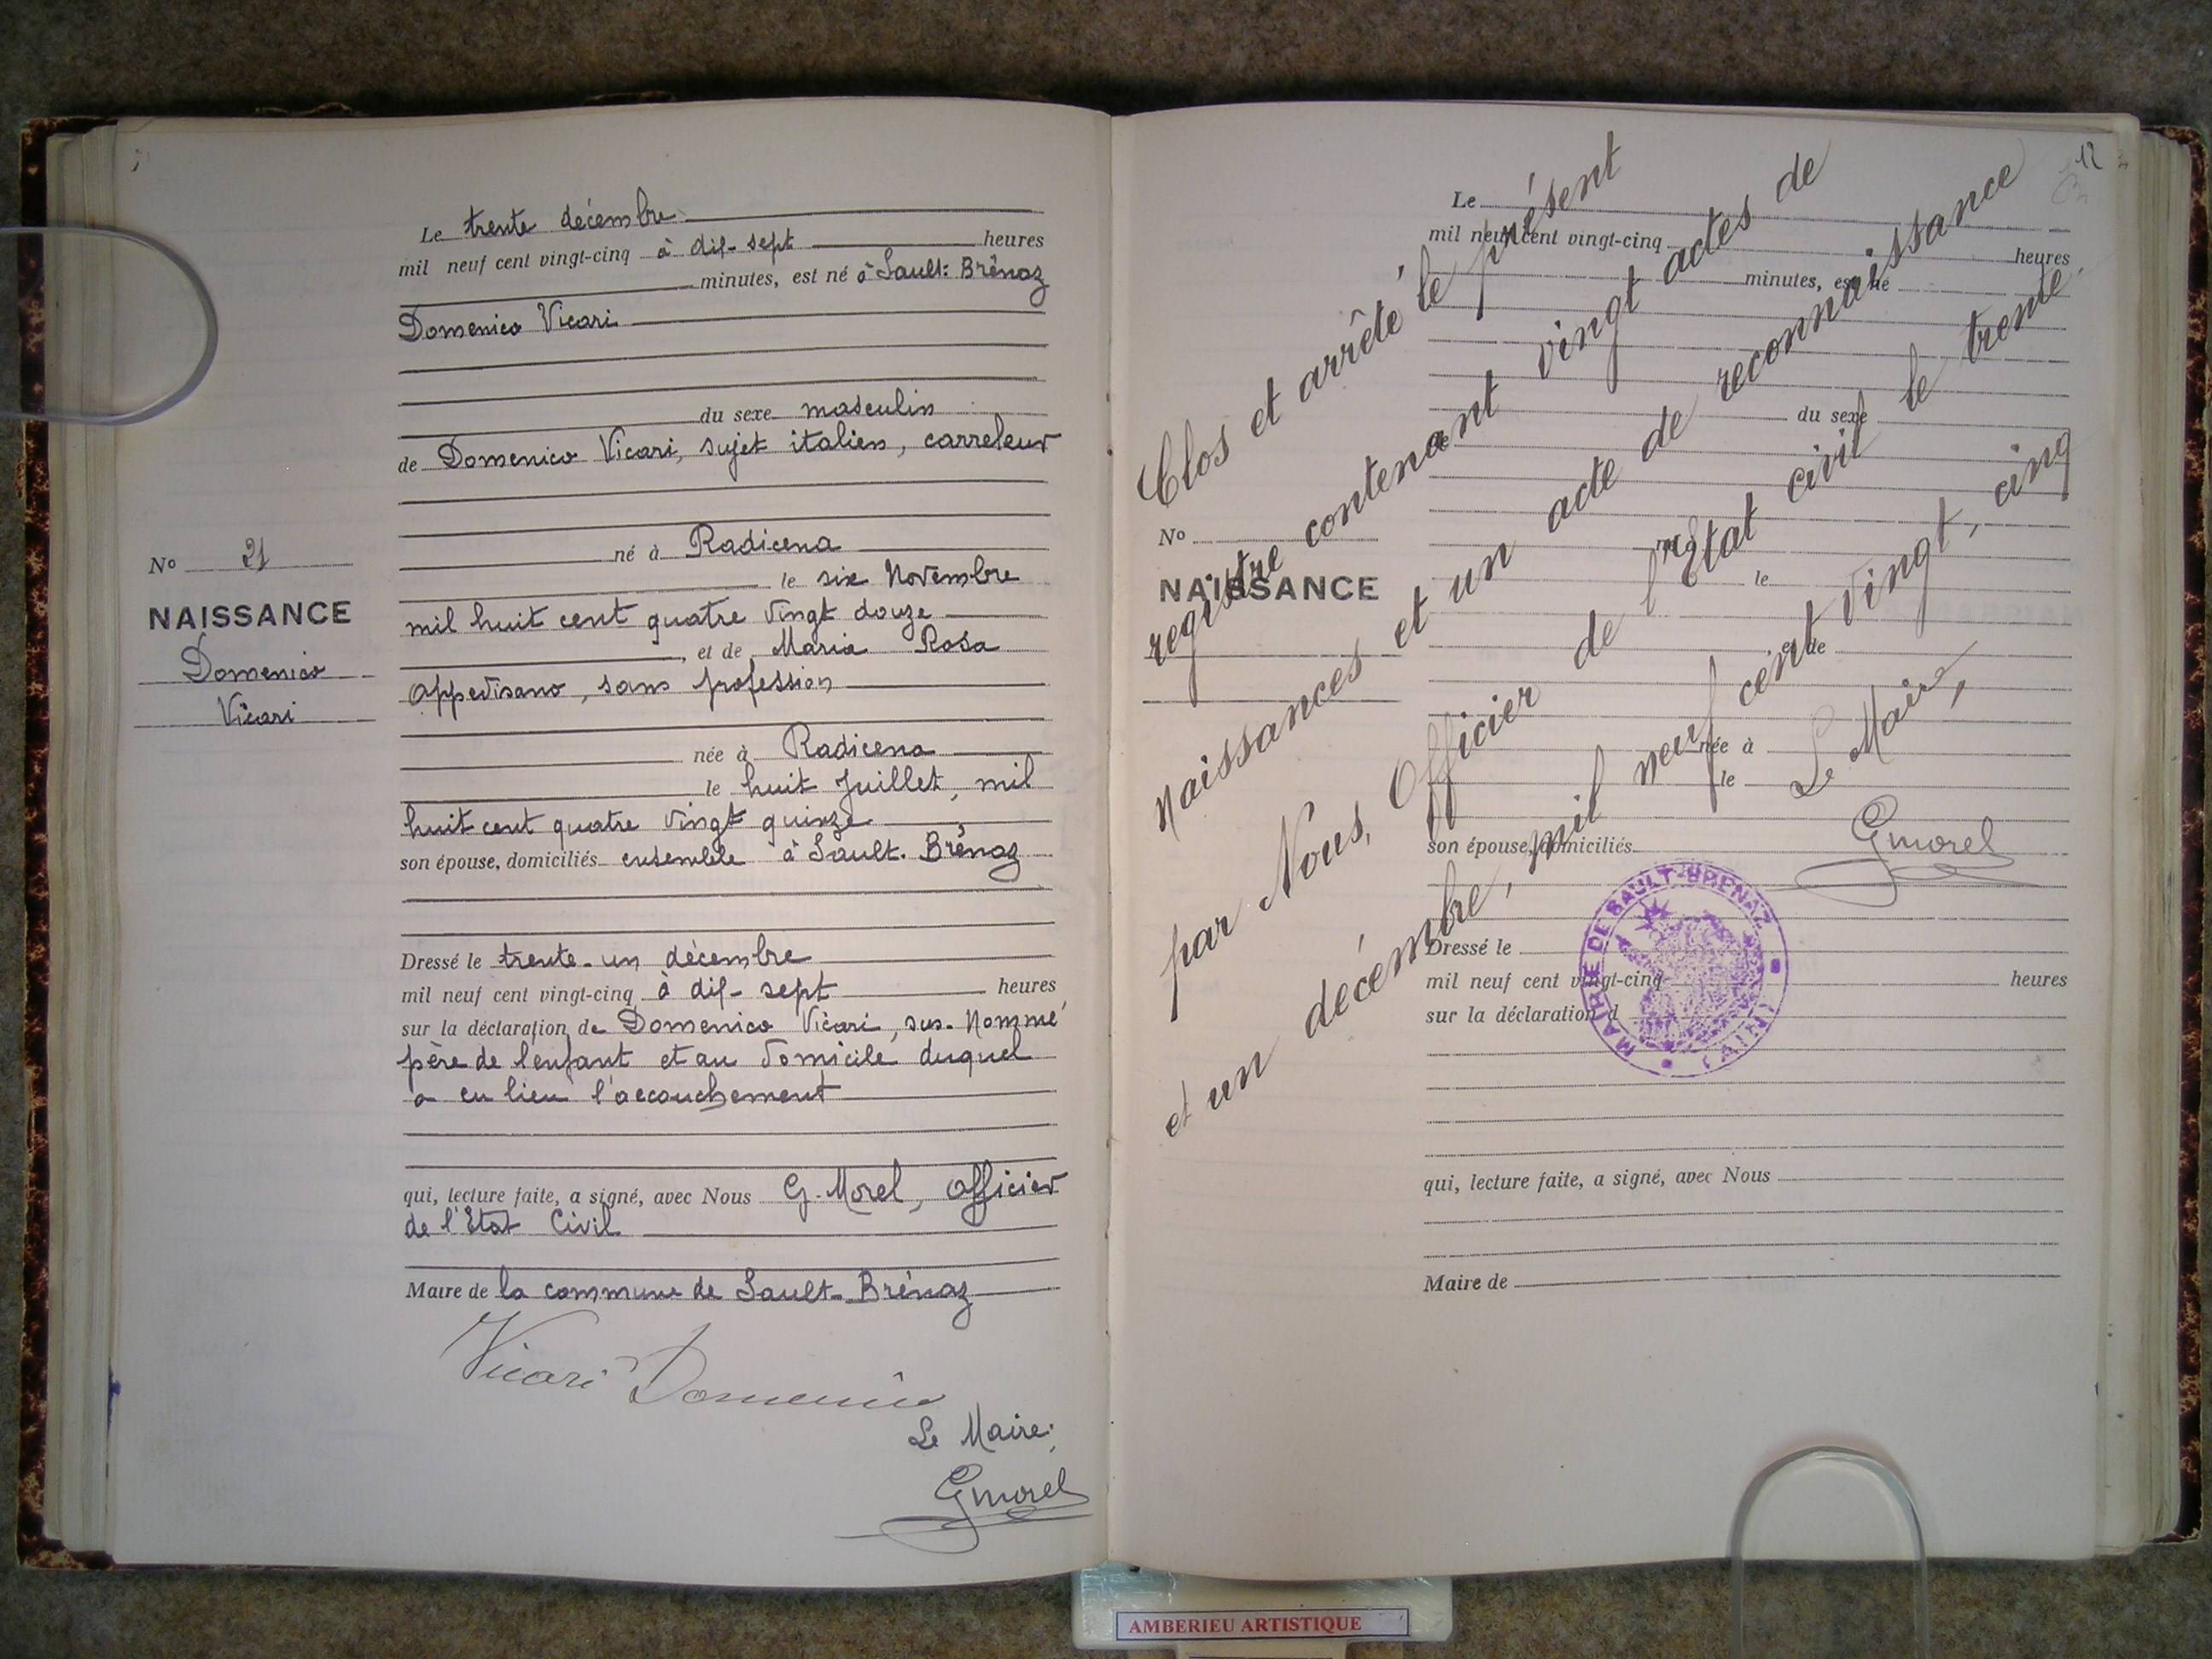 Le trente décembre
mil neuf cent vingt-cinq à dix-sept heures
minutes, est né à Sault-Brénaz
Domenico Vicari
du sexe masculin
de Domenico Vicari, sujet italien, carreleur
né à Radicena
le six Novembre
mil huit cent quatre vingt douze
et de Maria Rosa
Appedisano, sans profession
née à Radicena
le huit Juillet, mil
huit cent quatre vingt quinze
son épouse, domiciliés ensemble à Sault-Brénaz
Dressé le trente-un décembre
mil neuf cent vingt-cinq à dix-sept heures
sur la déclaration de Domenico Vicari, sus-Nommé
père de l'enfant et au domicile duquel
a eu lieu l'accouchement
qui, lecture faite, a signé, avec Nous G. Morel, Officier
de l'Etat Civil
Maire de la commune de Sault-Brénaz
Vicari Domenico
Le Maire:
GMorel
No 21
NAISSANCE
Domenico
Vicari
12
Clos et arrêté le présent
registre contenant vingt actes de
Naissances et un acte de reconnaissance
par Nous, Officier de l'Etat civil le trente
et un décembre, mil neuf cent vingt, cinq
Le Maire,
GMorel
MAIRIE DE SAULT-BRENAZ
(AIN)
Le
mil neuf cent vingt-cinq
heures
minutes, est né
du sexe
de
né à
le
et de
née à
le
son épouse, domiciliés
Dressé le
mil neuf cent vingt-cinq heures
sur la déclaration d
qui, lecture faite, a signé, avec Nous
Maire de
No
NAISSANCE
AMBERIEU ARTISTIQUE